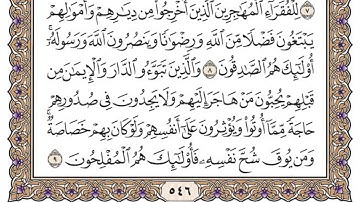 لِلْفُقَرَآءِ ٱلْمُهَٰجِرِينَ ٱلَّذِينَ أُخْرِجُوا۟ مِن دِيَٰرِهِمْ وَأَمْوَٰلِهِمْ
يَبْتَغُونَ فَضْلًا مِّنَ ٱللَّهِ وَرِضْوَٰنًا وَيَنصُرُونَ ٱللَّهَ وَرَسُولَهُۥٓ
أُو۟لَٰٓئِكَ هُمُ ٱلصَّٰدِقُونَ ٨ وَٱلَّذِينَ تَبَوَّءُو ٱلدَّارَ وَٱلْإِيمَٰنَ مِن
قَبْلِهِمْ يُحِبُّونَ مَنْ هَاجَرَ إِلَيْهِمْ وَلَا يَجِدُونَ فِى صُدُورِهِمْ
حَاجَةً مِّمَّآ أُوتُوا۟ وَيُؤْثِرُونَ عَلَىٰٓ أَنفُسِهِمْ وَلَوْ كَانَ بِهِمْ خَصَاصَةٌ
وَمَن يُوقَ شُحَّ نَفْسِهِۦ فَأُو۟لَٰٓئِكَ هُمُ ٱلْمُفْلِحُونَ ٩
٥٤٦